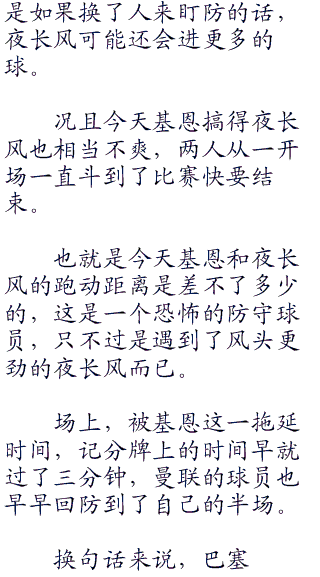 是如果换了人来盯防的话，
夜长风可能还会进更多的
球。
况且今天基恩搞得夜长
风也相当不爽，两人从一开
场一直斗到了比赛快要结
束。
也就是今天基恩和夜长
风的跑动距离是差不了多少
的，这是一个恐怖的防守球
员，只不过是遇到了风头更
劲的夜长风而已。
场上，被基恩这一拖延
时间，记分牌上的时间早就
过了三分钟，曼联的球员也
早早回防到了自己的半场。
换句话来说，巴塞